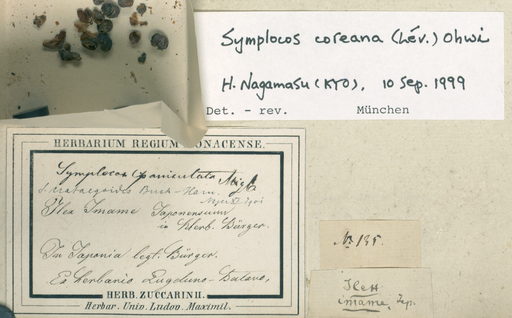 Symplocos coreana (Lév.) Ohwi
H. Nagamasu (KYO), 10 Sep. 1999
Det. - rev. München
HERBARIUM REGIUM MONACENSE.
Symplocos paniculata Miq.
S. crataegoides Buch-Ham.
Ilex Imame Japonensium
in Herb. Bürger.
In Japonia legt. Bürger.
Ex herbario Lugduno-Batavo,
HERB. ZUCCARINII.
Herbar. Univ. Ludov. Maximil.
№ 135.
Ilex
imame, Jap.